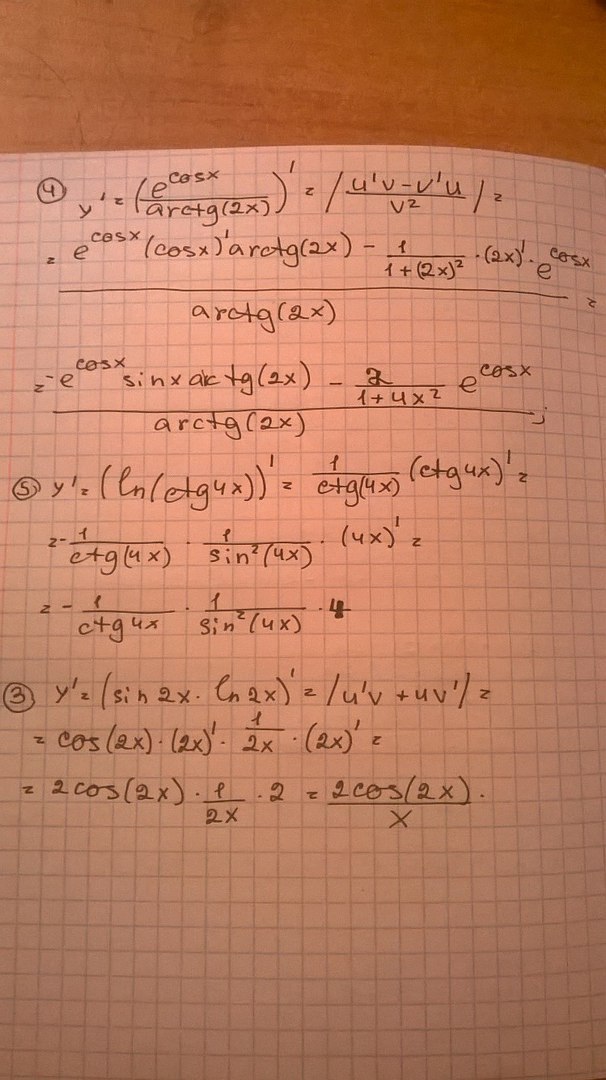 ④ y' = (e^cosx / arctg(2x))' = / (u'v - v'u) / v² / =
= (e^cosx (cosx)' arctg(2x) - 1/(1+(2x)²) · (2x)' · e^cosx) / arctg(2x) =
= (-e^cosx sinx arctg(2x) - 2/(1+4x²) e^cosx) / arctg(2x) ;
⑤ y' = (ln(ctg4x))' = 1/ctg(4x) (ctg4x)' =
= - 1/ctg(4x) · 1/sin²(4x) · (4x)' =
= - 1/ctg4x · 1/sin²(4x) · 4
③ y' = (sin2x · ln2x)' = /u'v + uv'/ =
= cos(2x) · (2x)' · 1/2x · (2x)' =
= 2cos(2x) · 1/2x · 2 = 2cos(2x)/x .